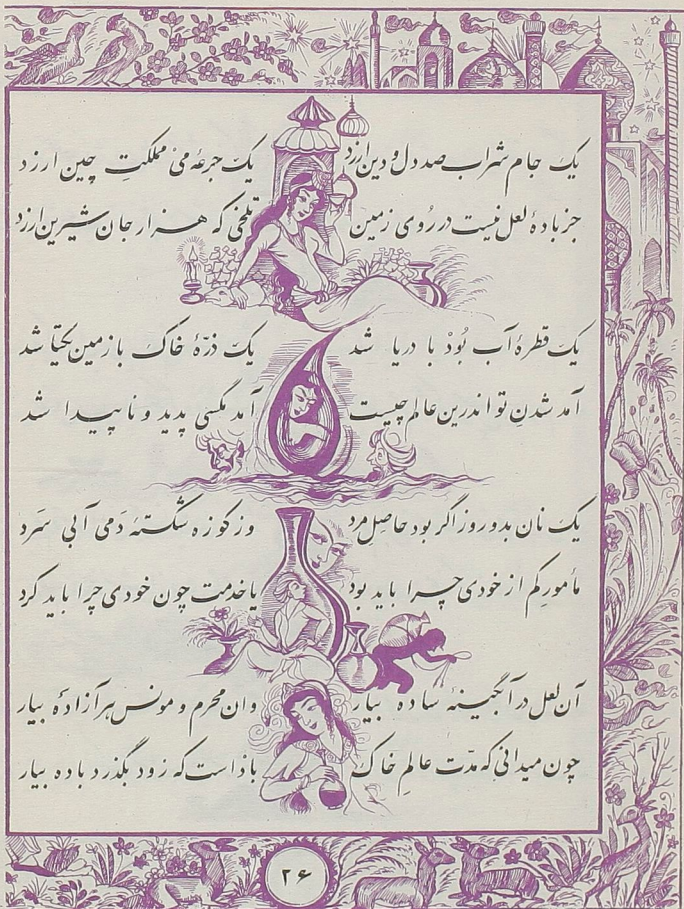 یک جام شراب صد دل و دین ارزد یک جرعهٔ می مملکت چین ارزد
جز بادهٔ لعل نیست در روی زمین تلخی که هزار جان شیرین ارزد
یک قطرهٔ آب بُوْد با دریا شد یک ذرّهٔ خاک با زمین یکتا شد
آمد شدنِ تو اندرین عالم چیست آمد مگسی پدید و ناپیدا شد
یک نان بدو روز اگر بود حاصلِ مرد وز کوزه شکستهٔ دَمی آبی سَرد
مأمورِ کم از خودی چرا باید بود یا خدمت چون خودی چرا باید کرد
آن لعل در آبگینهٔ ساده بیار وان محرم و مونس هر آزاده بیار
چون میدانی که مدّت عالمِ خاک باد است که زود بگذرد باده بیار
۲۶